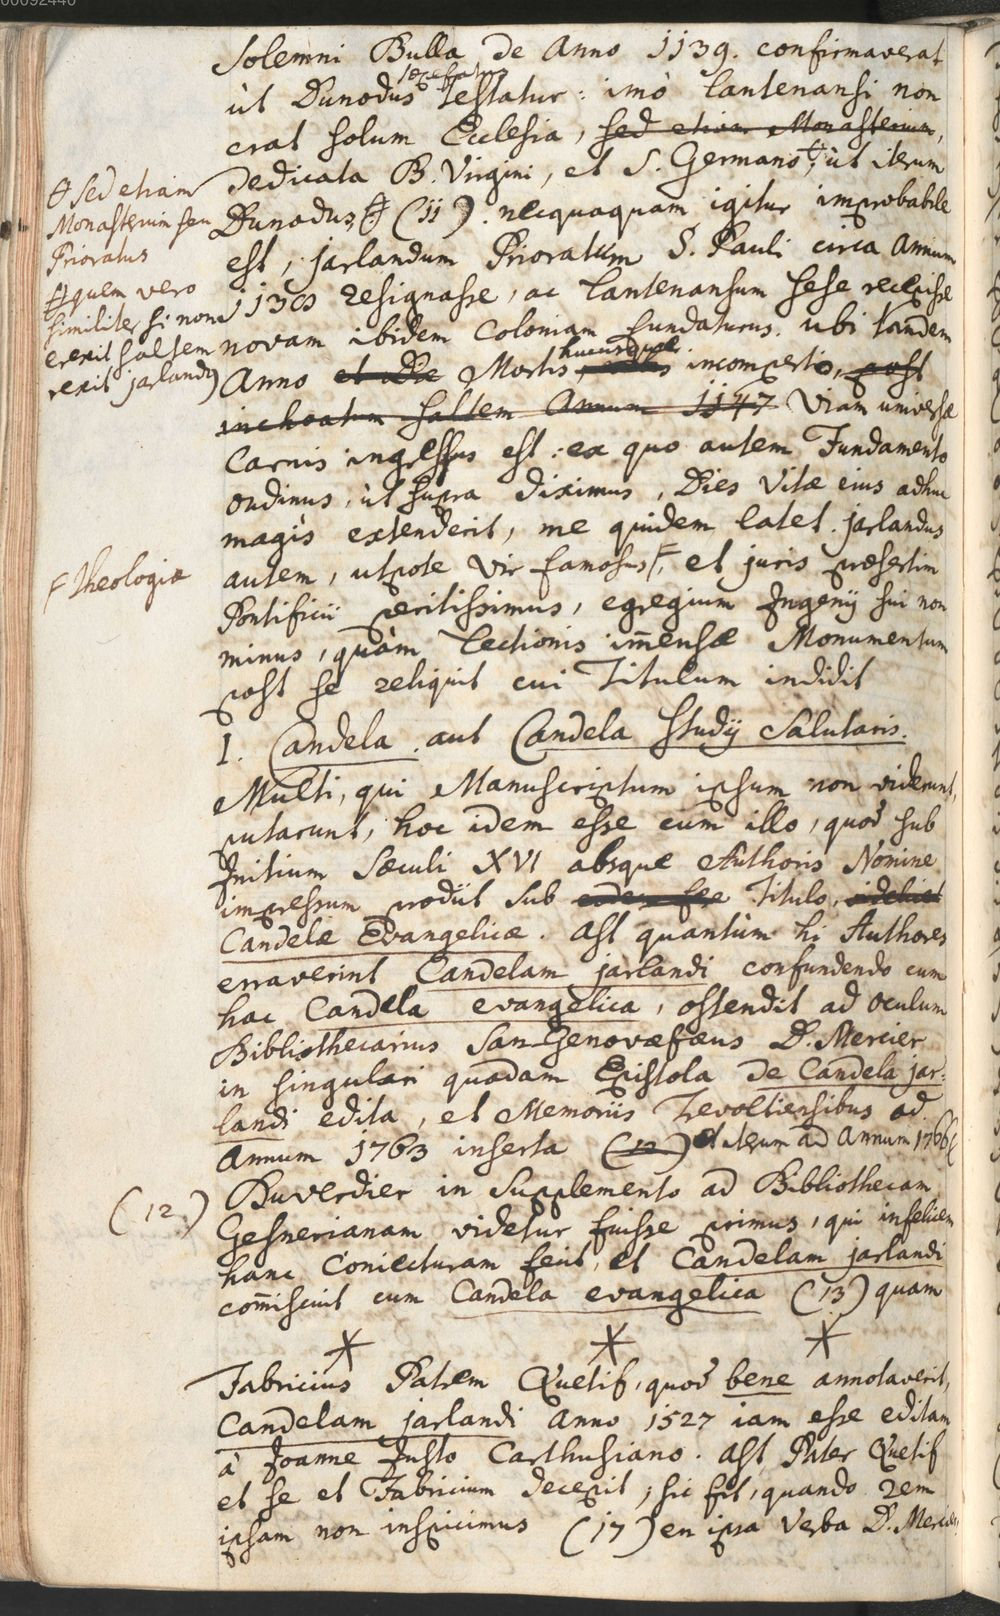 00092440
Solemni Bulla de Anno 1139. confirmaverat
ùt Dunodus testatur: imò Lantenansi non
erat solum Ecclesia, sed etiam Monasterium,
dedicata B. Virgini, et S. Germano, ùt iterum
Dunodus (11). nequaquam igitur improbabile
est, jarlandum Prioratum S. Pauli circa Annum
1130 resignasse, ac Lantenansum sese recepisse
novam ibidem Coloniam fundaturus. ubi tandem
Anno et Die Mortis hucusque incomperto, post
inchoatum saltem Annum 1147 Viam universæ
Carnis ingressus est: ex quo autem Fundamento
ordinus, ùt supra diximus, Dies Vitæ eius adhuc
magis extenderit, me quidem latet. jarlandus
autem, utpote Vir famosus, et juris præsertim
Pontificii peritissimus, egregium Ingenij sui non
minus, quàm Lectionis im̄ensæ Monumentum
post se reliquit cui Titulum indidit
I. Candela aut Candela Studij Salutaris.
Multi, qui Manuscriptum ipsum non viderunt,
putarunt, hoc idem esse cum illo, quod sub
Initium Sæculi XVI absque Authoris Nomine
impressum prodiit sub Titulo, videlicet
Candelæ Evangelicæ. Ast quantùm hi Authores
erraverint Candelam jarlandi confundendo cum
hac Candela evangelica, ostendit ad oculum
Bibliothecarius San-Genovefæus D. Mercier
in singulari quadam Epistola de Candela jar:
landi edita, et Memoriis Trevoltiensibus ad
Annum 1763 inserta (12) et iterum ad Annum 1766
Duverdier in Supplemento ad Bibliothecam
Gesnerianam videtur fuisse primus, qui infelicem
hanc Coniecturam fecit, et Candelam jarlandi
com̄iscuit cum Candela evangelica (13) quam
* * *
Fabricius Patrem Quetif, quod bene annotaverit,
Candelam jarlandi Anno 1527 iam esse editam
à Joanne Justo Carthusiano. Ast Pater Quetif
et se et Fabricium decepit; sic fit, quando rem
ipsam non inspicimus (17) en ipsa Verba D. Mercier
sed etiam
Monasterium seu
Prioratus
quem vero
similiter si non
erexit saltem
rexit jarland9
F theologiæ
(12.)